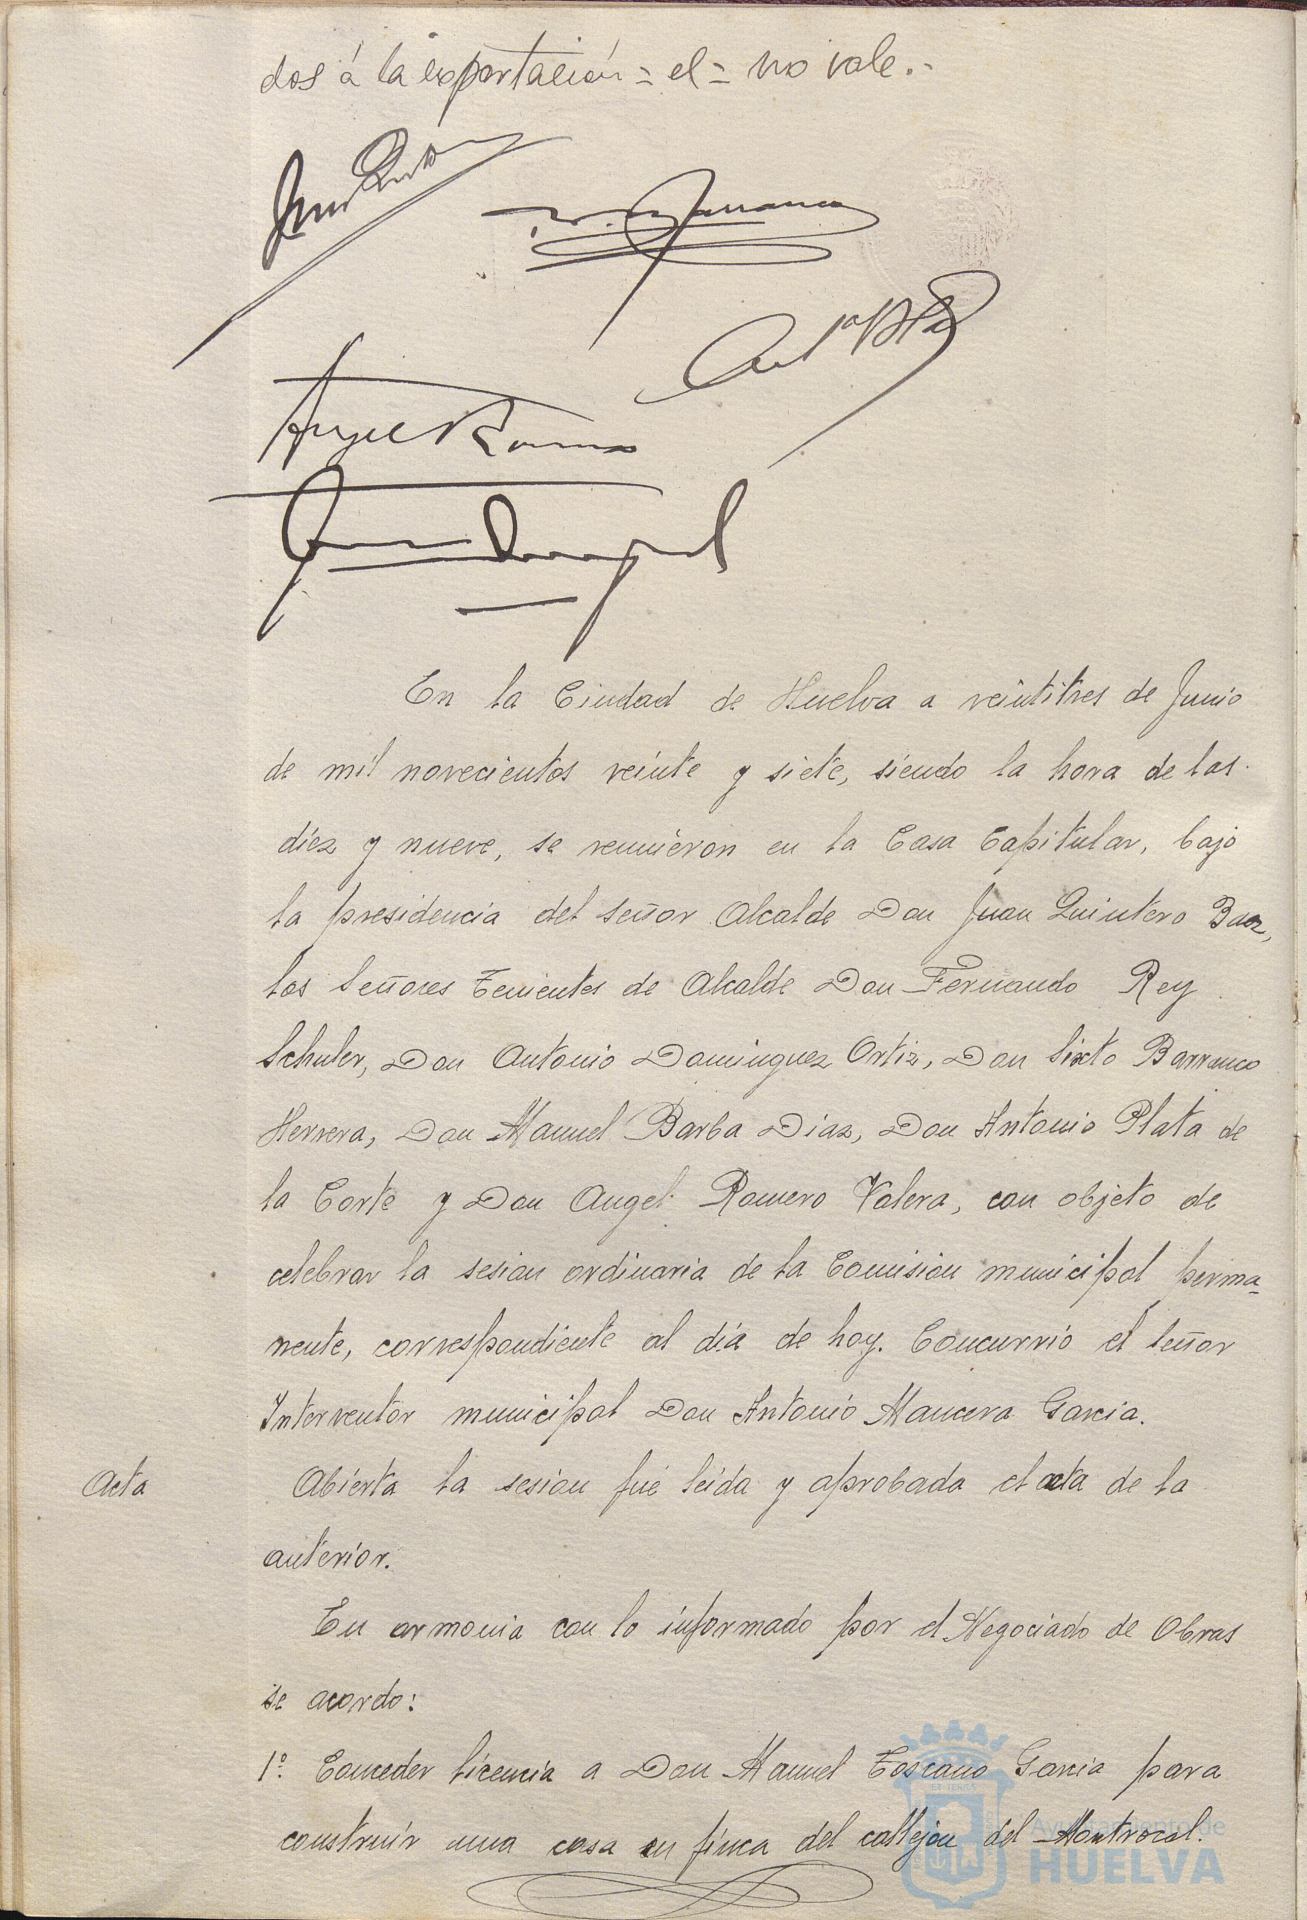 dos á la exportación = el = no vale.-
Angel Romero
En la Ciudad de Huelva a veintitres de Junio
de mil novecientos veinte y siete, siendo la hora de las
diez y nueve, se reunieron en la Casa Capitular, bajo
la presidencia del Señor Alcalde Don Juan Quintero Baez,
los Señores Tenientes de Alcalde Don Fernando Rey
Schuler, Don Antonio Dominguez Ortiz, Don Sixto Barranco
Herrera, Don Manuel Barba Diaz, Don Antonio Plata de
la Corte y Don Angel Romero Valera, con objeto de
celebrar la sesion ordinaria de la Comision municipal perma-
nente, correspondiente al día de hoy. Concurrió el Señor
Interventor municipal Don Antonio Mancera Garcia.
Acta
Abierta la sesion fué leida y aprobada el acta de la
anterior.
En armonia con lo informado por el Negociado de Obras
se acordo:
1º. Conceder licencia a Don Manuel Toscano Garcia para
construir una casa en finca del callejon del Montrocal.
Ayuntamiento de
HUELVA